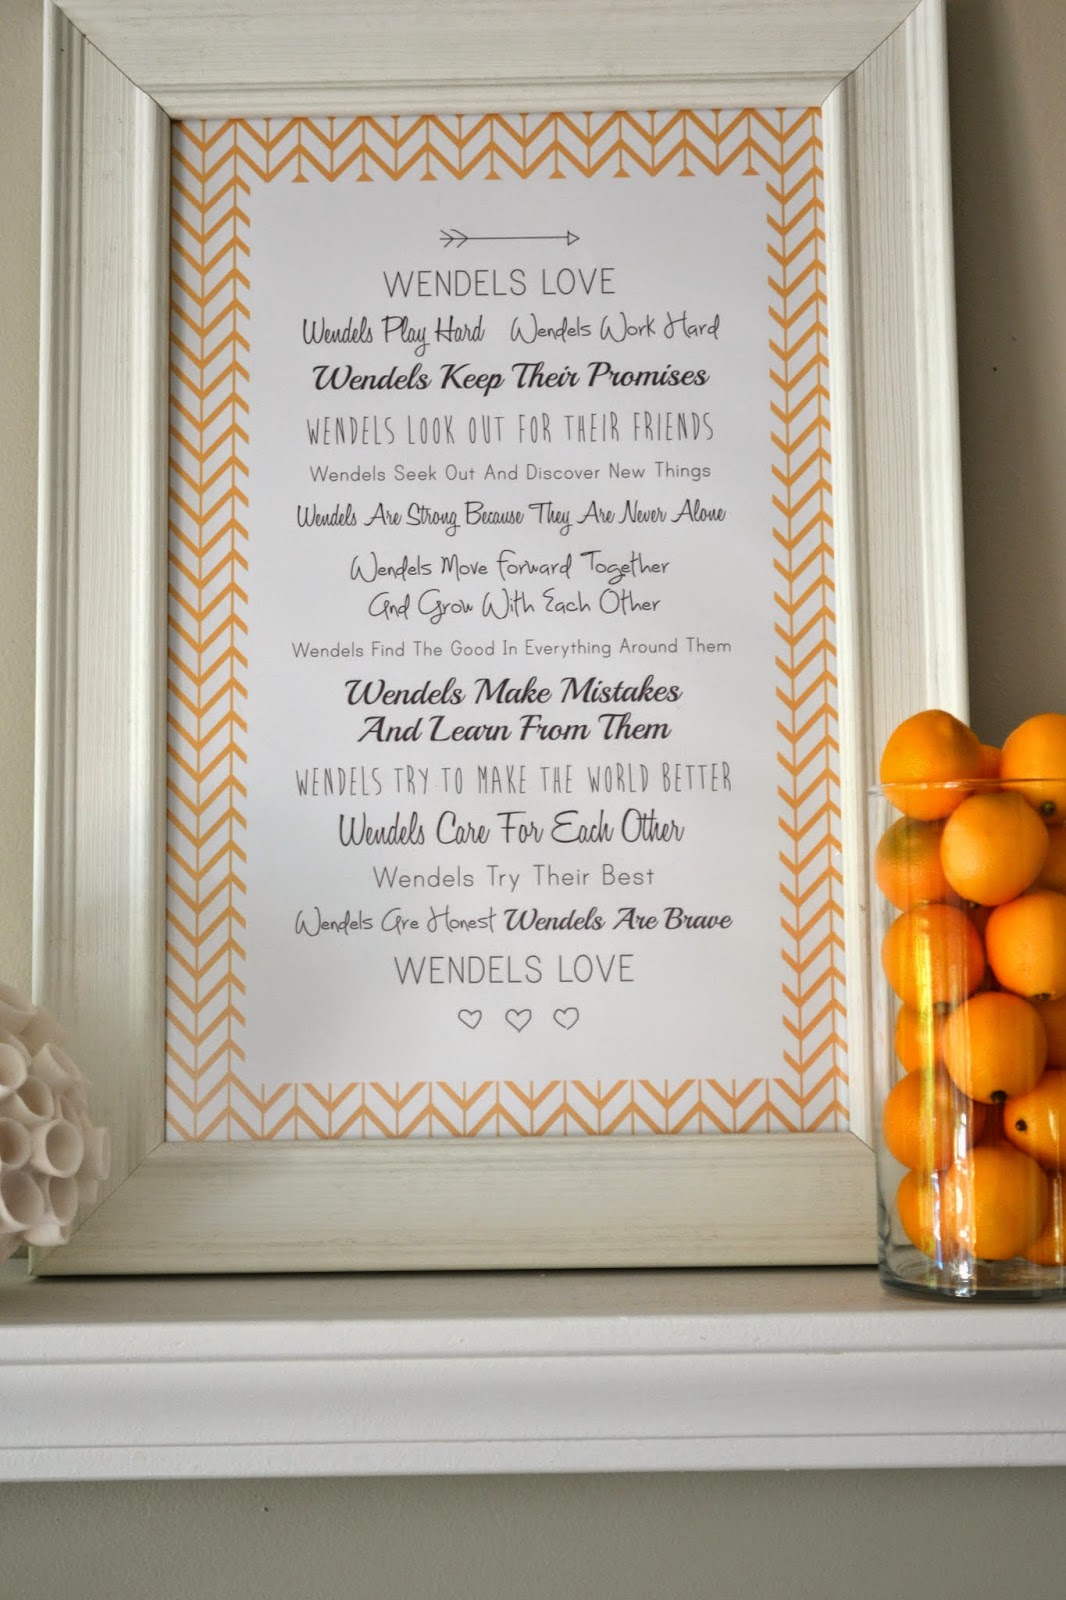 WENDELS LOVE
Wendels Play Hard Wendels Work Hard
Wendels Keep Their Promises
WENDELS LOOK OUT FOR THEIR FRIENDS
Wendels Seek Out And Discover New Things
Wendels Are Strong Because They Are Never Alone
Wendels Move Forward Together
And Grow With Each Other
Wendels Find The Good In Everything Around Them
Wendels Make Mistakes
And Learn From Them
WENDELS TRY TO MAKE THE WORLD BETTER
Wendels Care For Each Other
Wendels Try Their Best
Wendels Are Honest Wendels Are Brave
WENDELS LOVE